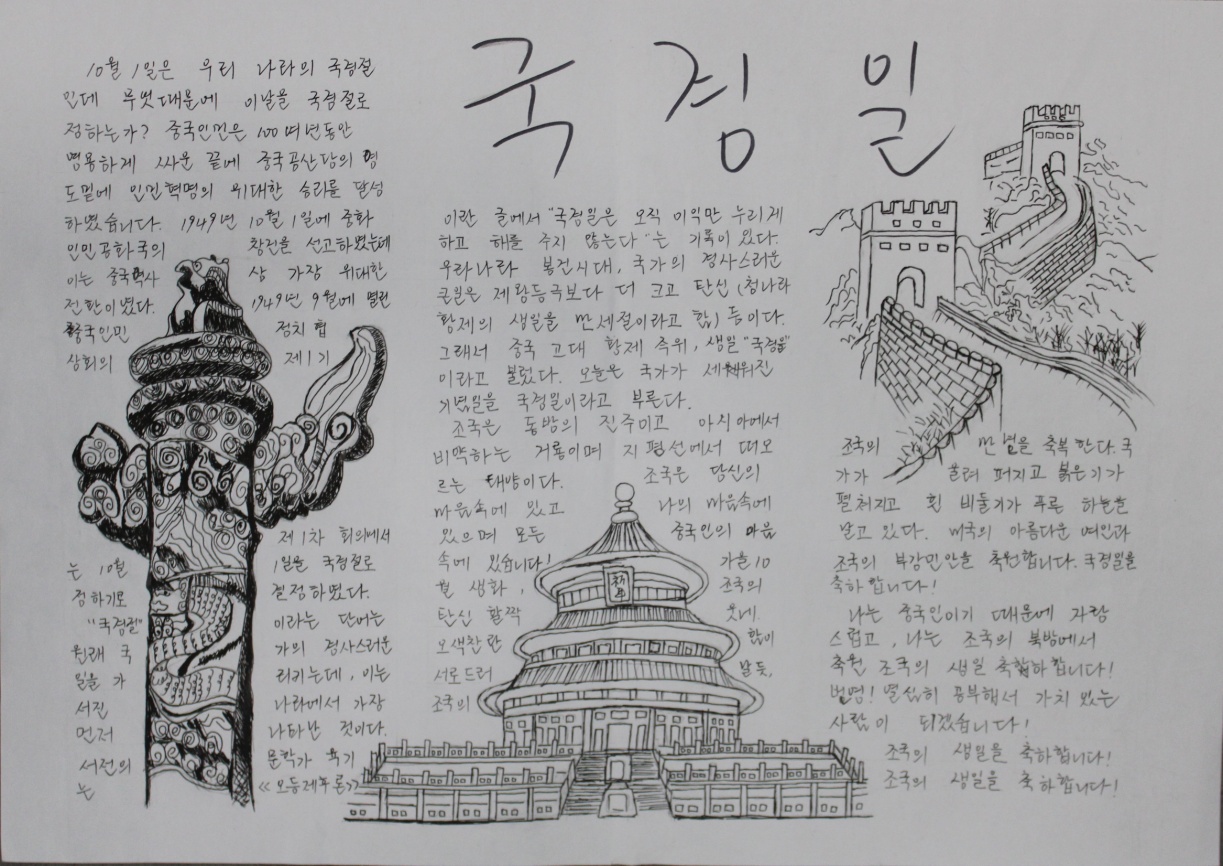 국경일
10월 1일은 우리 나라의 국경절
인데 무엇때문에 이날을 국경절로
정하는가? 중국인민은 100여년동안
영용하게 싸운 끝에 중국공산당의 영
도밑에 인민혁명의 위대한 승리를 달성
하였습니다. 1949년 10월 1일에 중화
인민공화국의 창건을 선고하였는데
이는 중국력사 상 가장 위대한
전환이였다. 1949년 9월에 열린
중국인민 정치협
상회의 제1기
제1차 회의에서
는 10월 1일을 국경절로
정하기로 결정하였다.
"국경절" 이라는 단어는
원래 국 가의 경사스러운
일을 가 리키는데, 이는
서진 나라에서 가장
먼저 나타난 것이다.
서전의 문학가 육기
는 <<오등제후론>>
이란 글에서 "국경일은 오직 이익만 누리게
하고 해를 주지 않는다"는 기록이 있다.
우리나라 봉건시대, 국가의 경사스러운
큰일은 제왕등극보다 더 크고 탄신 (청나라
황제의 생일을 만세절이라고 함) 등이다.
그래서 중국 고대 황제 즉위, 생일 "국경일"
이라고 불렀다. 오늘은 국가가 세워진
기념일을 국경일이라고 부른다.
조국은 동방의 진주이고 아시아에서
비약하는 거룡이며 지평선에서 떠오
르는 태양이다. 조국은 당신의
마음속에 있고 나의 마음속에
있으며 모든 중국인의 마음
속에 있습니다! 가을 10
월 생화, 조국의
탄신 활짝 웃네.
오색찬란 함이
서로드러 날듯,
조국의
조국의 만 년을 축복한다. 국
가가 울려 퍼지고 붉은기가
펼쳐지고 흰 비둘기가 푸른 하늘을
날고 있다. 미국의 아름다운 여인과
조국의 부강민안을 축원합니다. 국경일을
축하합니다!
나는 중국인이기 때문에 자랑
스럽고, 나는 조국의 북방에서
축원, 조국의 생일 축하합니다!
열심히 공부해서 가치 있는
사람이 되겠습니다!
조국의 생일을 축하합니다!
조국의 생일을 축하합니다!